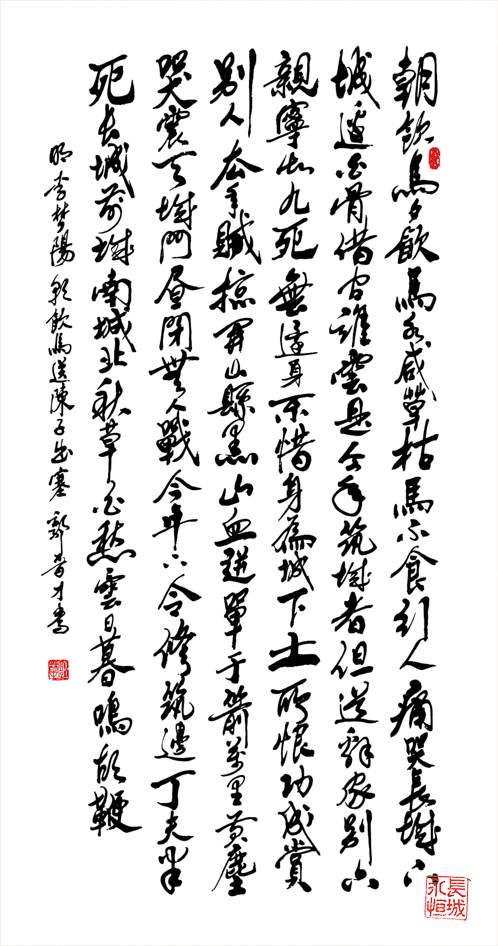 朝飲馬夕飲馬水咸草枯馬不食行人痛哭長城下
城邊白骨借问誰雲是今年筑城者但道辭家別六
親寧知九死無還身不惜身為城下土所恨功成賞
別人去年賊掠開山縣黑山血迸單于箭萬里黃塵
哭震天城門昼閉無人戰今年下令修筑邊丁夫半
死長城前城南城北秋草白愁雲日暮鳴胡鞭
明李梦陽朝飲馬送陳子出塞 郭普才書
長城永恒